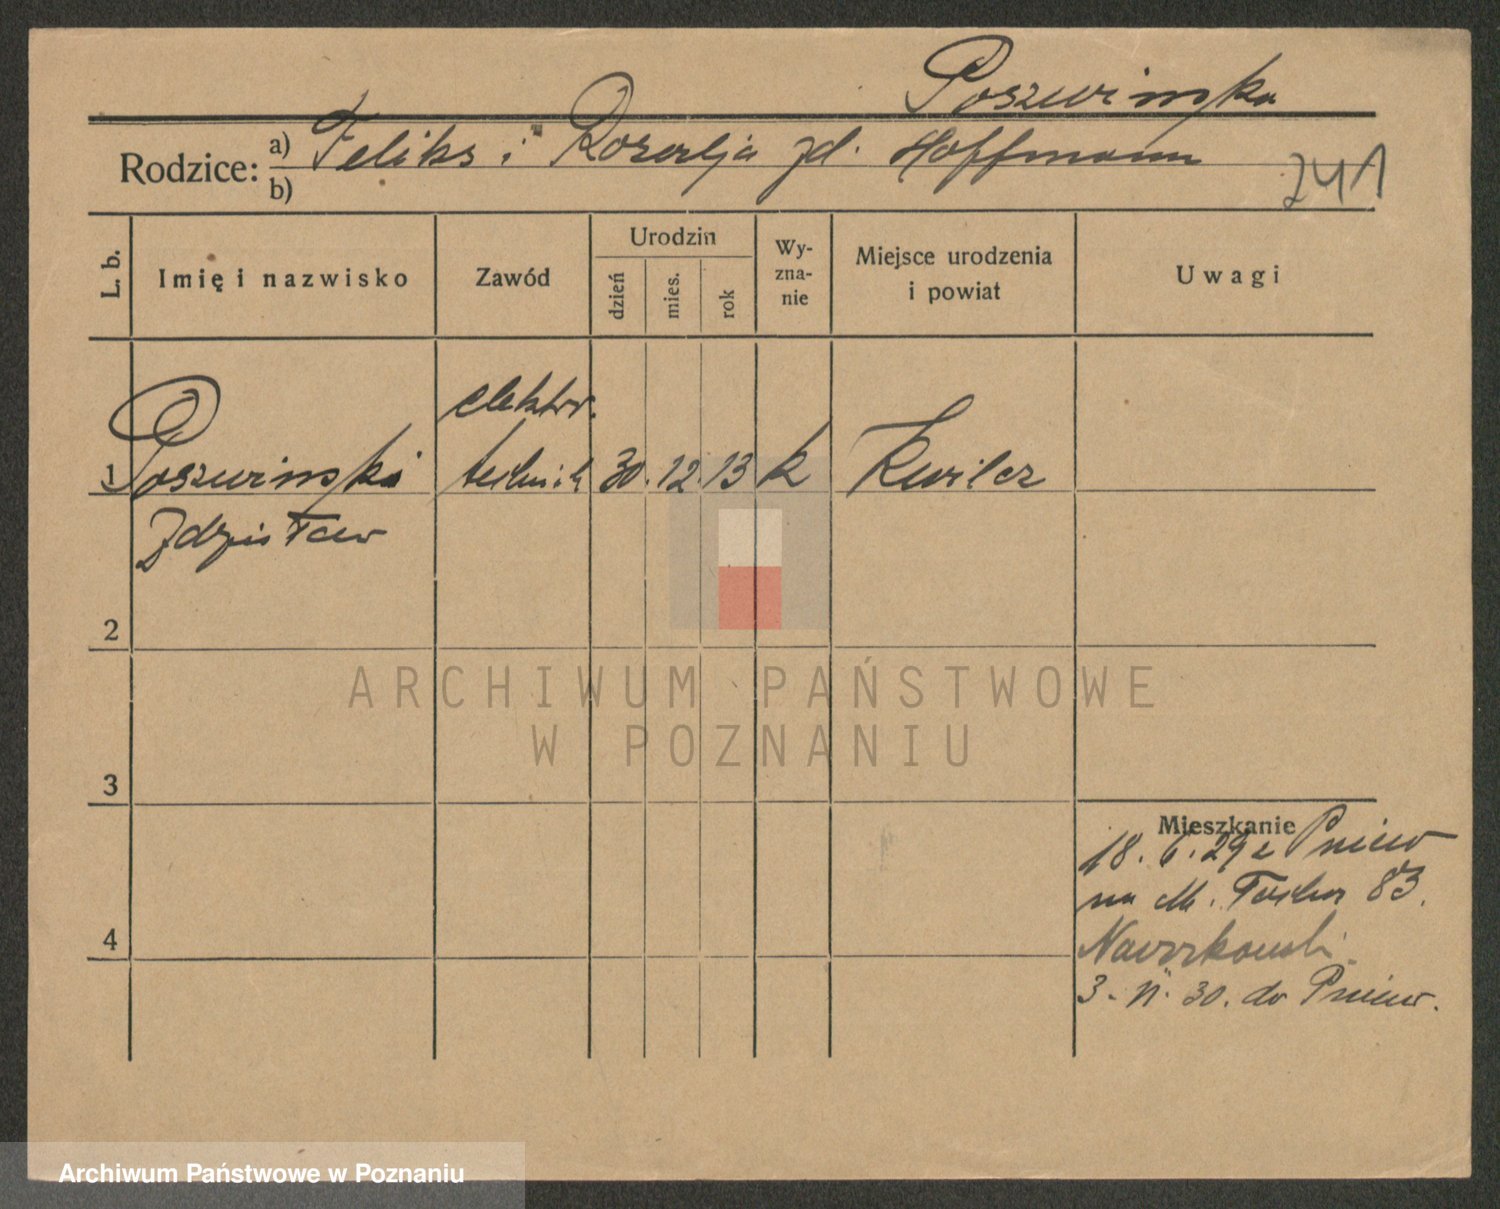 Poszwinska
Rodzice: a) Feliks i Rozalja zd. Hoffmann
b)
241
L. b.
Imię i nazwisko
Zawód
Urodzin
dzień
mies.
rok
Wy-
zna-
nie
Miejsce urodzenia
i powiat
Uwagi
elektro.
1 Poszwinski technik 30. 12. 13 k Kwilcz
Zdzisław
2
ARCHIWUM PAŃSTWOWE
W POZNANIU
3
Mieszkanie
18. 6. 29 z Pniew
na M. 83.
4
3. 30. do Pniew.
Archiwum Państwowe w Poznaniu